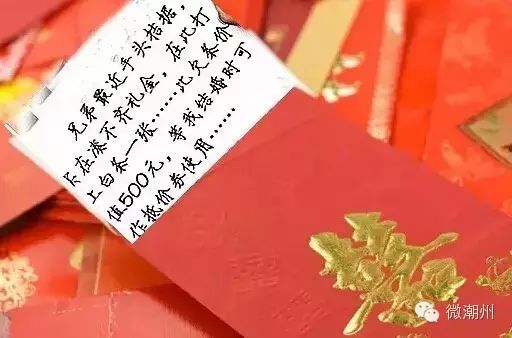 兄弟最近手头拮据，
实在凑不齐礼金，在此打
上白条一张……此欠条价
值500元，等我结婚时可
作抵价券使用……
微潮州